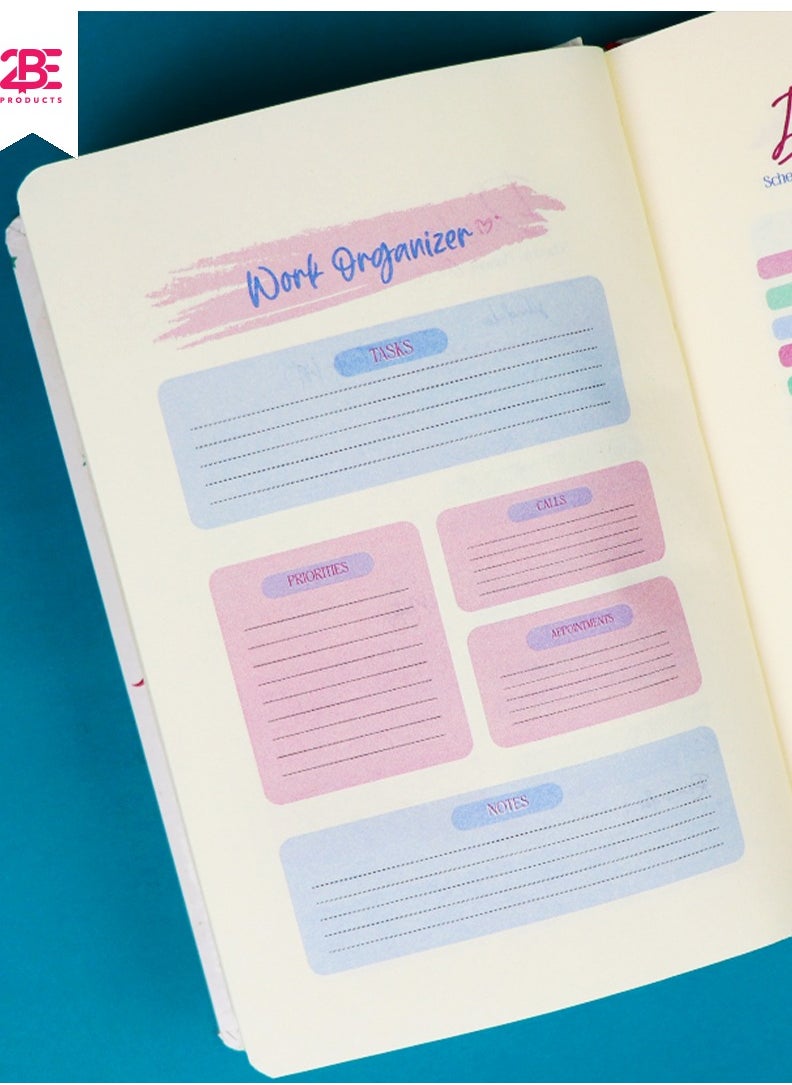 2BE
PRODUCTS
Work Organizer
TASKS
PRIORITIES
CALLS
APPOINTMENTS
NOTES
Sche